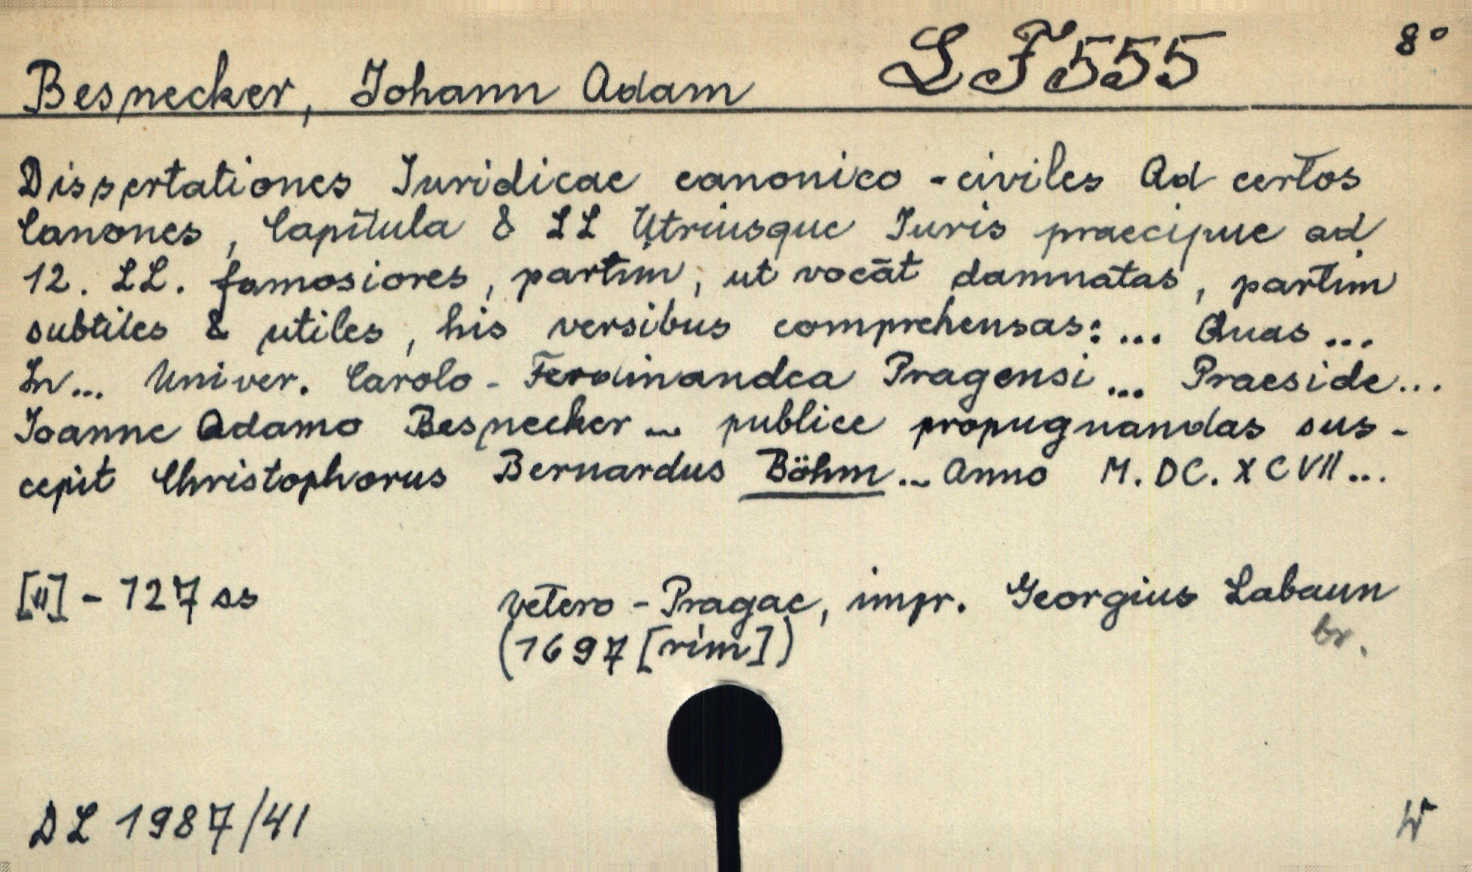 LF555 8°
Besnecker, Johann Adam
Dissertationes Iuridicae canonico-civiles Ad certos
Canones, Capitula & LL Utriusque Iuris praecipue ad
12. LL. famosiores, partim, ut vocāt damnatas, partim
subtiles & utiles, his versibus comprehensas: ... Quas ...
In ... Univer. Carolo-Ferdinandea Pragensi ... Praeside ...
Joanne Adamo Besnecker ... publice propugnandas sus-
cepit Christophorus Bernardus Böhm ... Anno M.DC.XCVII ...
[II] - 127 ss
Vetero-Pragae, impr. Georgius Labaun
(1697 [rim]) br.
DL 1987/41 W